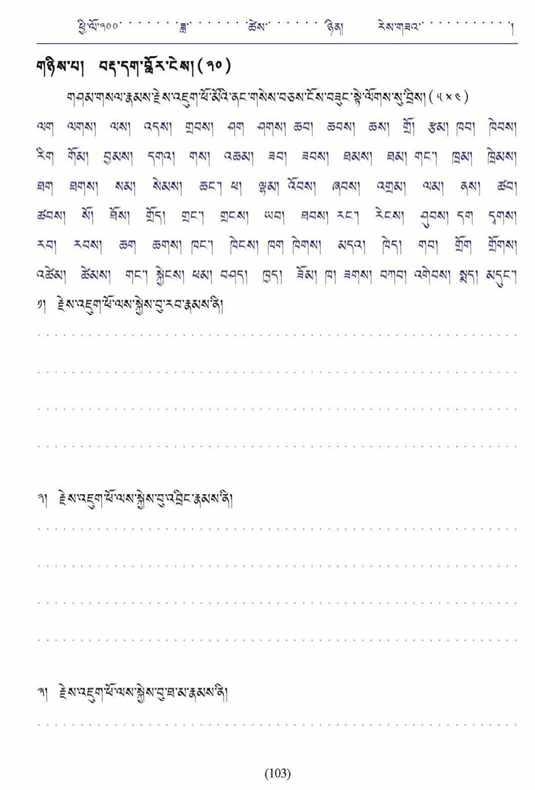 ཕྱི་ལོ་༢༠༠ ཟླ་ ཚེས་ ཉིན། རེས་གཟའ་ །
གཉིས་པ། བརྡ་དག་སྦྱོར་ངེས། (༢༠)
གཤམ་གསལ་རྣམས་རྗེས་འཇུག་ཕོ་མོའི་ནང་གསེས་བཅས་ངོས་བཟུང་སྟེ་ལོགས་སུ་བྲིས། (༥ x ༤)
ལག ལགས། ལས། འདས། གྲབས། ཤག ཤགས། ཆབ། ཆབས། ཆས། གྲོ། རྩམ། ཁབ། ཁེབས།
རིག གོམ། བྱམས། དགའ། གས། འཆམ། ཟབ། ཟབས། ཐམས། ཐམ། གང་། ཁྲམ། ཁྲིམས།
ཐག ཐགས། སམ། སེམས། ཆང་། ཕ། ལྷམ། འོབས། ཞབས། འགྲམ། ལམ། ནས། ཚབ།
ཚབས། སོ། ཐོས། གྲོད། གྲང་། གྲངས། ཡབ། ཐབས། རང་། རེངས། ཤུབས། དག དྭགས།
རབ། རབས། ཆག ཆགས། ཁང་། ཁེངས། ཁག ཁེགས། མདའ། ཁེད། གབ། གྲོག གྲོགས།
འཚེམ། ཚེམས། གང་། སྐྱེངས། ཕམ། བཤད། ཁྱད། ཟོམ། ཁ། ཟགས། བཀབ། འགེབས། སྨད། མདུང་།
༡། རྗེས་འཇུག་ཕོ་ལས་སྐྱེས་བུ་རབ་རྣམས་ནི།
༢། རྗེས་འཇུག་ཕོ་ལས་སྐྱེས་བུ་འབྲིང་རྣམས་ནི།
༣། རྗེས་འཇུག་ཕོ་ལས་སྐྱེས་བུ་ཐ་མ་རྣམས་ནི།
(103)